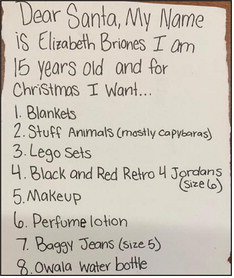 Dear Santa, My Name
is Elizabeth Briones I am
15 years old and for
Christmas I Want...
1. Blankets
2. Stuff Animals (mostly capybaras)
3. Lego Sets
4. Black and Red Retro 4 Jordans
(size 6)
5. Makeup
6. Perfume lotion
7. Baggy Jeans (size 5)
8. Owala water bottle